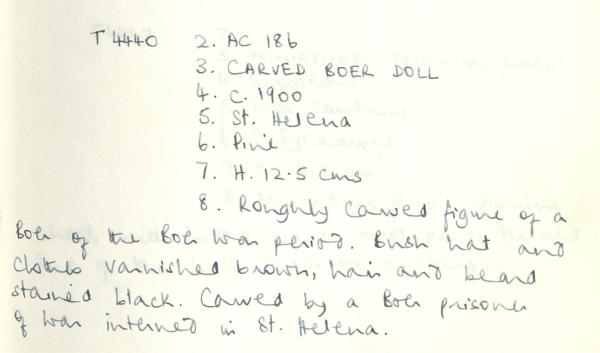 T 4440 2. AC 186
3. CARVED BOER DOLL
4. C. 1900
5. St. Helena
6. Pine
7. H. 12.5 cms
8. Roughly carved figure of a
Boer of the Boer War period. Bush hat and
clothes varnished brown, hair and beard
stained black. Carved by a Boer prisoner
of war interned in St. Helena.